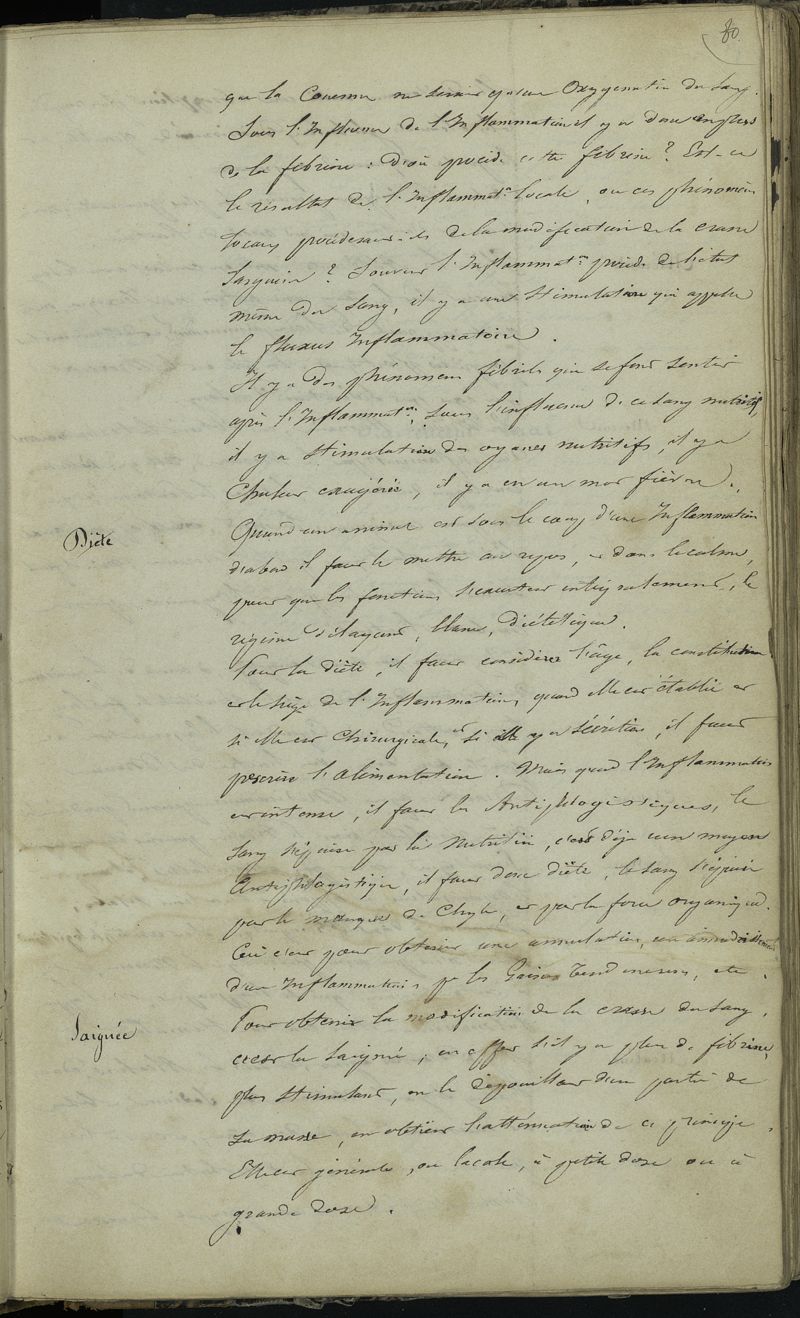 80.
que la Couenne ne serait qu'une Oxygenation du Sang.
Sous l'Influence de l'Inflammation il y a donc
de la fibrine : D'où procède cette fibrine ? Est-ce
le résultat de l'Inflammat.n locale, ou ces phénomèn
locaux procèdent-ils de la modification de la crase
Sanguine ? Souvent l'Inflammat.n procède de l'état
même du Sang, il y a une Stimulation qui appelle
le fluxus Inflammatoire.
Il y a des phénomènes fébriles qui se font sentir
après l'Inflammat.n, sous l'influence de ce sang nutritif,
il y a Stimulation des organes nutritifs, il y a
Chaleur exagérée, il y a en un mot fièvre.
Diète
Quand un animal est sous le coup d'une Inflammation
d'abord il faut le mettre au repos, et dans le calme,
pour que les fonctions s'exécutent intégralement, le
régime délayant, blanc, diététique.
Pour la diète, il faut considérer l'âge, la constitution
et le siège de l'Inflammation, quand elle est établie et
si elle est Chirurgicale, et si elle y a Sécrétion, il faut
prescrire l'alimentation. Mais quand l'Inflammation
est intense, il faut les Antiphlogistiques, le
Sang s'épuise par la Nutrition, c'est déjà un moyen
Antiphlogistique, il faut donc diète, le Sang s'épuise
par le manque de Chyle, et par la force organique.
Ceci c'est pour obtenir une annulation, un
d'une Inflammation, p.r les Gaines tendineuses, etc.
Saignée
Pour obtenir la modification de la crase du Sang,
c'est la Saignée, en effet s'il y a plus de fibrine,
plus Stimulant, en le dépouillant d'une partie de
sa masse, on obtient l'atténuation de ce principe.
Elle est générale, ou locale, à petite dose ou à
grande dose.